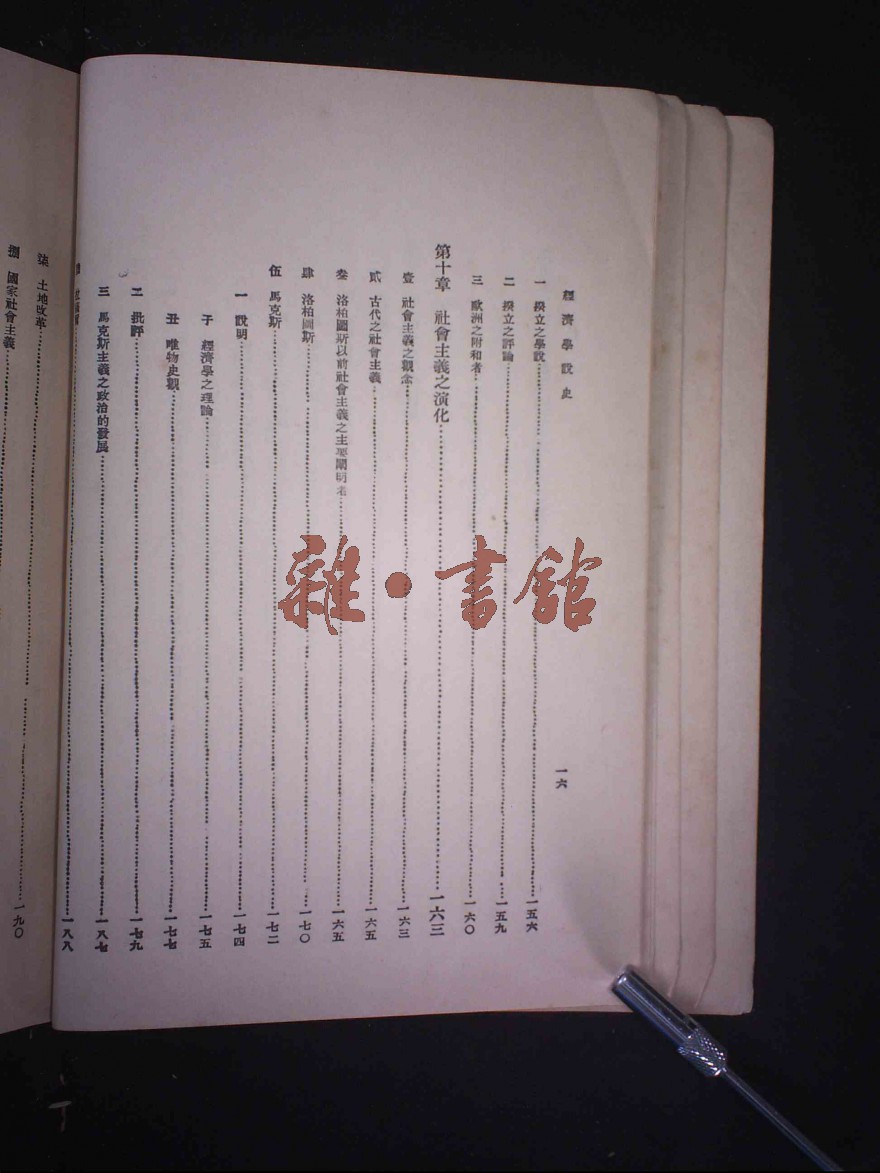 經濟學說史
一六
一 揆立之學說……一五六
二 揆立之評論……一五九
三 歐洲之附和者……一六〇
第十章 社會主義之演化……一六三
壹 社會主義之觀念……一六三
貳 古代之社會主義……一六五
叄 洛柏圖斯以前社會主義之主要闡明者……一六五
肆 洛柏圖斯……一七〇
伍 馬克斯……一七二
一 說明……一七四
子 經濟學之理論……一七五
丑 唯物史觀……一七七
二 批評……一七九
三 馬克斯主義之政治的發展……一八七
……一八八
柒 土地改革……一九〇
捌 國家社會主義……
雜·書館